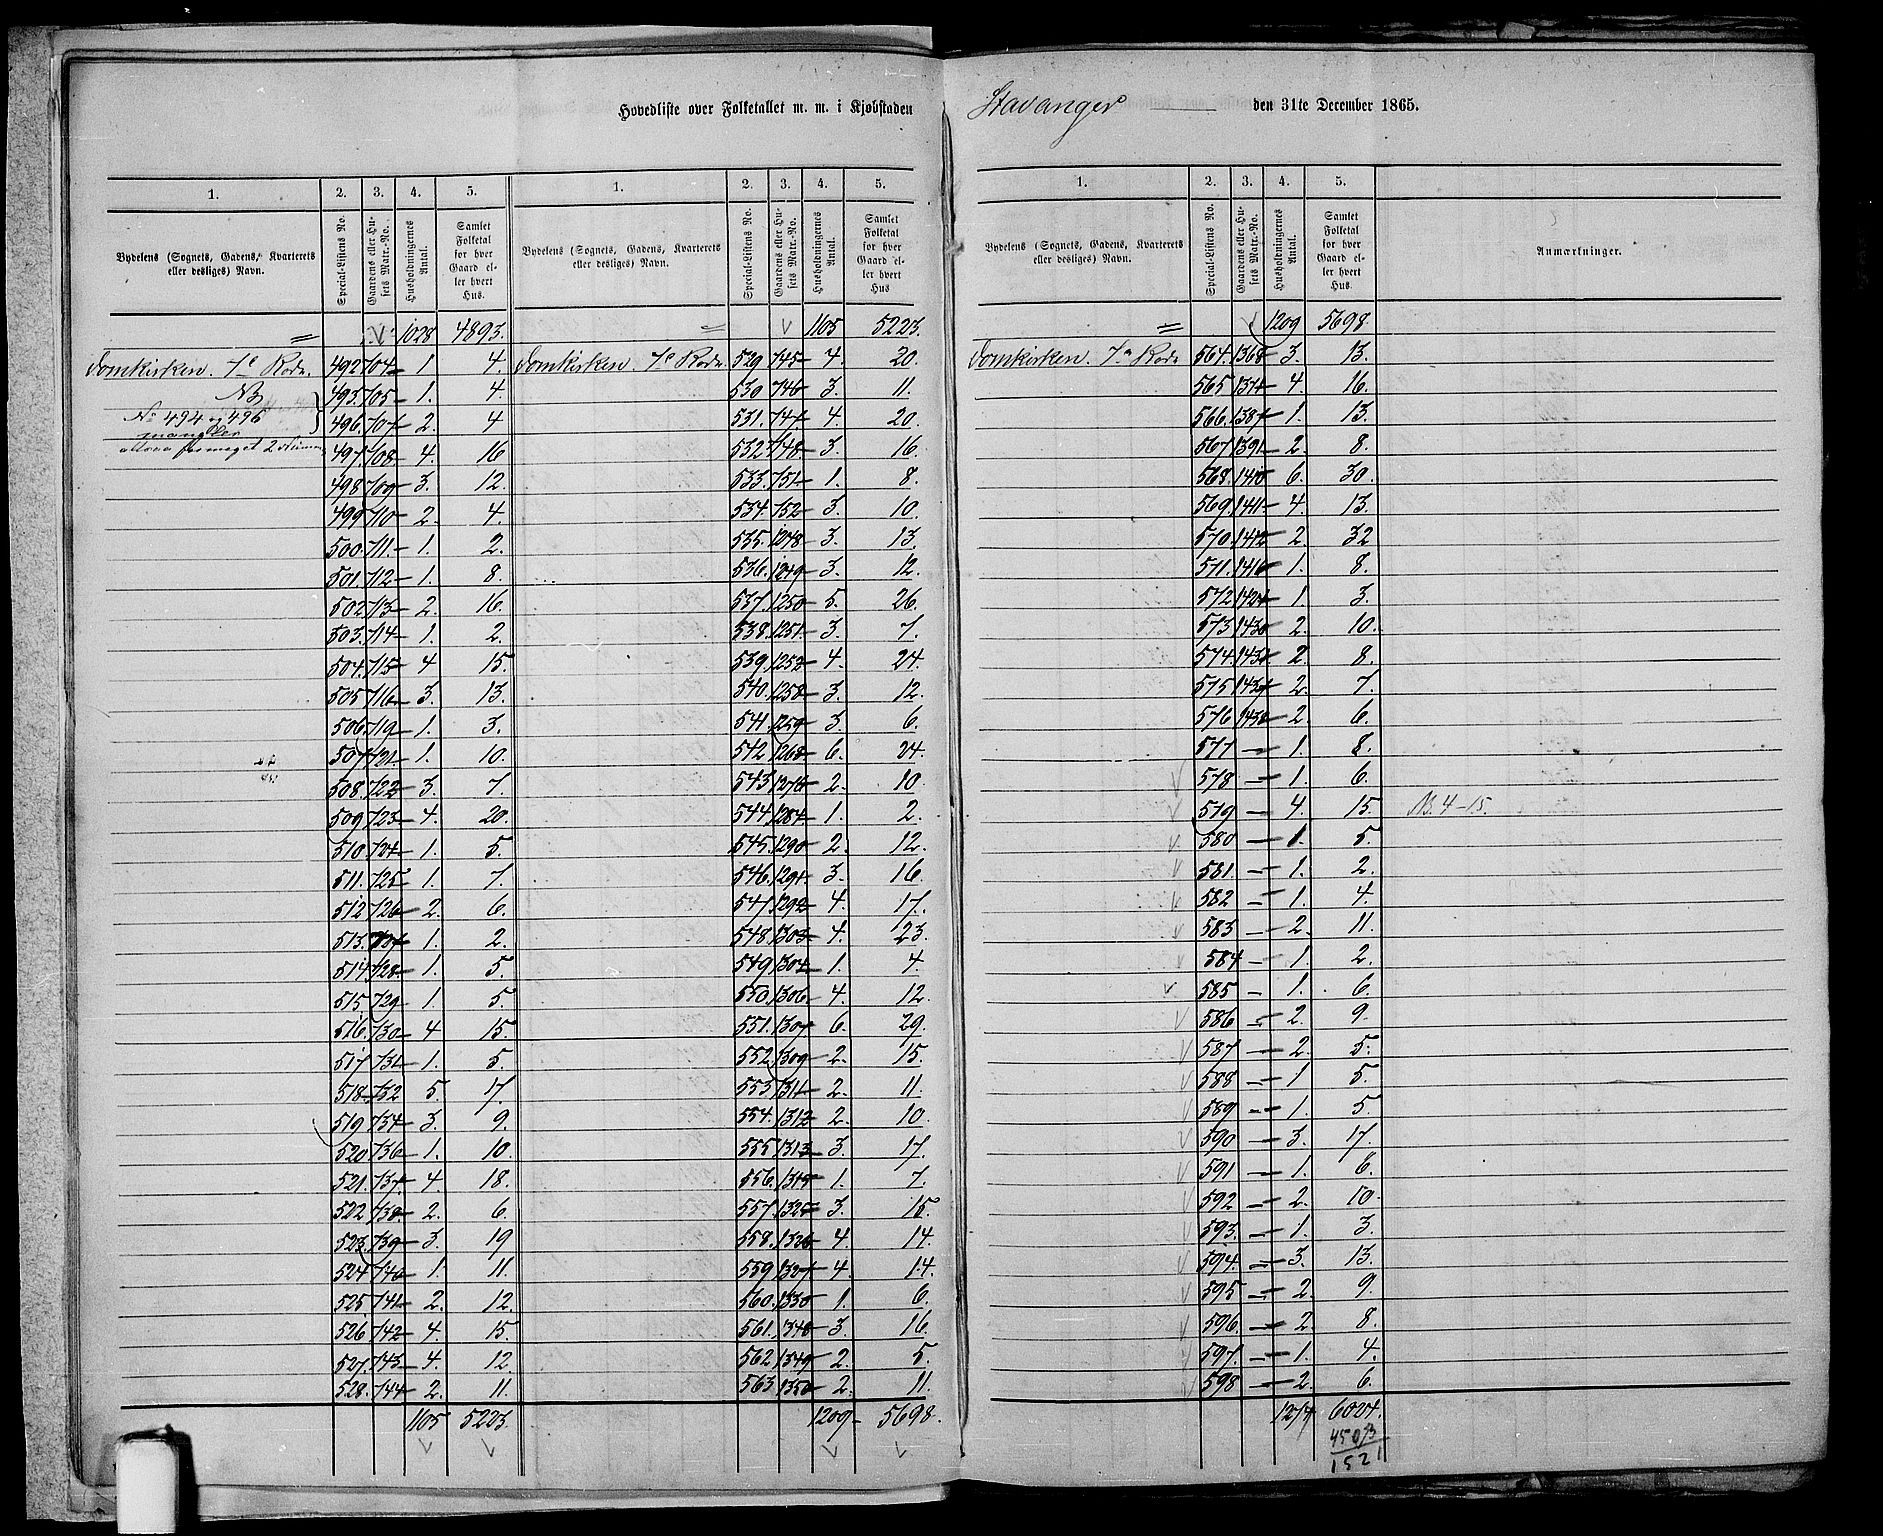 Hovedliste over Folketallet m. m. i Kjøbstaden Stavanger den 31te December 1865.
1. 2. 3. 4. 5. 1. 2. 3. 4. 5.
Bydelens (Sognets, Gadens, Kvarterets eller desliges) Navn. Special-Listens No. Gaardens eller Husets Matr.-No. Husholdningernes Antal. Samlet Folketal for hver Gaard eller hvert Hus.
Bydelens (Sognets, Gadens, Kvarterets eller desliges) Navn. Special-Listens No. Gaardens eller Husets Matr.-No. Husholdningernes Antal. Samlet Folketal for hver Gaard eller hvert Hus
= V 1028 4893.
Domkirken. 7e Rode. 492 704 1 4.
NB 493. 705 1. 4
No 494 og 495 mangler 496. 707 2. 4
altsaa formeget 2 Numre 497. 708 4. 16
498 709 3. 12.
499 710 2. 4.
500. 711. 1. 2.
501. 712 1. 8.
502 713 2. 16.
503. 714 1. 2.
504. 715 4 15.
505 716 3. 13.
506. 719 1. 3.
507 721 1. 10.
508. 722 3. 7.
509 723 4. 20.
510. 724 1. 5.
511. 725 1. 7.
512 726 2. 6.
513. 727 1. 2.
514 728 1. 5.
515. 729 1. 5
516. 730 4 15.
517 731 1. 5.
518 732 5. 17.
519 734 3. 9.
520 736 1. 10.
521. 737 4. 18.
522 738 2. 6.
523. 739 3. 19
524 740 1. 11.
525. 741 2. 12.
526 742 4. 15.
527. 743 4. 12
528. 744 2. 11.
1105 5223.
= V 1105 5223.
Domkirken. 7e Rode. 529 745 4. 20.
530 746 3. 11.
531. 747 4. 20.
532 748 3. 16.
533. 751 1. 8.
534. 752 3. 10.
535. 1248 3. 13.
536. 1249 3. 12.
537. 1250 5. 26.
538. 1251 3. 7.
539. 1252 4. 24.
540. 1258 3. 12.
541. 1259 3 6.
542 1268 6. 24.
543 1276 2. 10
544. 1284 1. 2.
545. 1290 2. 12.
546. 1291 3. 16.
547 1292 4. 17.
548. 1303 4. 23.
549 1304 1. 4.
550. 1306 4. 12.
551. 1307 6. 29.
552. 1309 2. 15.
553. 1311 2. 11.
554. 1312 2. 10
555. 1313 3. 17.
556. 1315 1. 7.
557. 1325 3. 15.
558. 1326 4. 14.
559 1327 4. 14.
560. 1330 1. 6.
561. 1348 3. 16.
562 1349 2. 5.
563. 1350 2. 11.
1209 5698.
1. 2. 3. 4. 5.
Bydelens (Sognets, Gadens, Kvarterets eller desliges) Navn. Special-Listens No. Gaardens eller Husets Matr.-No. Husholdningernes Antal. Samlet Folketal for hver Gaard eller hvert Hus. Anmærkninger.
= V 1209 5698.
Domkirken. 7e Rode 564. 1368 3. 13.
565 1374 4. 16.
566. 1387 1. 13.
567 1391 2. 8.
568. 1410 6. 30.
569. 1411 4. 13.
570. 1412 2. 32
571. 1416 1. 8.
572 1424 1. 3.
573 1430 2. 10.
574. 1431 2. 8.
575 2. 7.
576 1438 2. 6.
577 1. 8.
578 1. 6.
579 4. 15. NB. 4-15.
580 1. 5.
581 1. 2.
582 1. 4.
583 2. 11.
584 1. 2.
585 1. 6.
586 2. 9.
587 2. 5.
588 1 5.
589 1. 5
590 3. 17.
591 1. 6.
592 2. 10.
593. 1. 3.
594. 3. 13.
595 2. 9.
596. 2. 8.
597. 1. 4.
598 2. 6.
1274 6024.
4503
1521